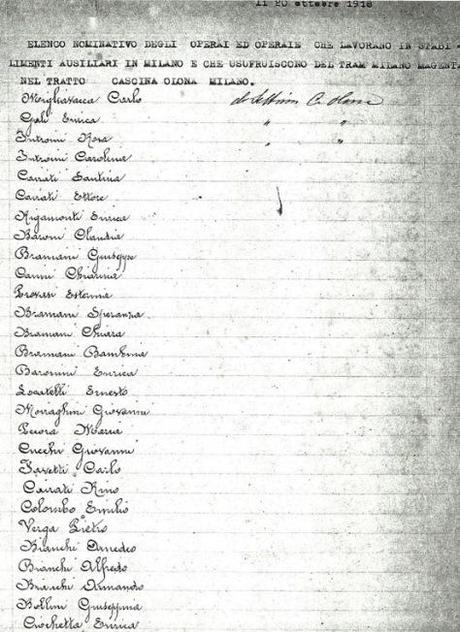 li 20 ottobre 1918
ELENCO NOMINATIVO DEGLI OPERAI ED OPERAIE CHE LAVORANO IN STABI =
LIMENTI AUSILIARI IN MILANO E CHE USUFRUISCONO DEL TRAM MILANO MAGENTA
NEL TRATTO CASCINA OLONA MILANO.
Migliavacca Carlo da Settimo C. Olona
Gali Enrica " "
Introini Rosa " "
Introini Carolina
Cairati Santina
Cairati Ettore
Rigamonti Enrica
Baroni Claudia
Bramani Giuseppe
Chiarina
Provasi Estermia
Bramani Speranza
Bramani Chiara
Bramani Bambina
Baronini Enrica
Locatelli Ernesto
Morraghini Giovanni
Pecora Maria
Cucchi Giovanni
Favetti Carlo
Cairati Rino
Colombo Emilio
Verga Pietro
Bianchi Amedeo
Bianchi Alfredo
Bianchi Armando
Bollini Giuseppina
Ciochetta Enrica